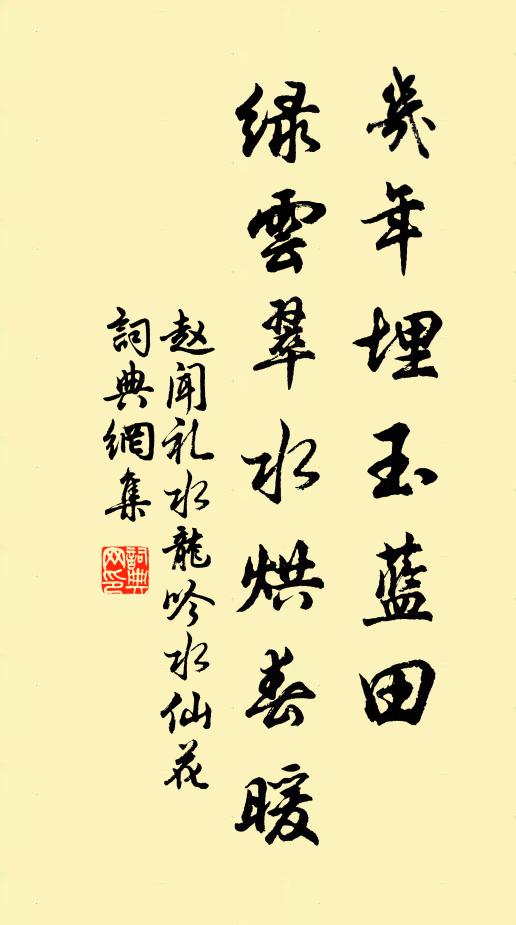 幾年埋玉藍田
綠雲翠水烘春暖
赵闻礼水龍吟水仙花
詞典網集
詞典网印